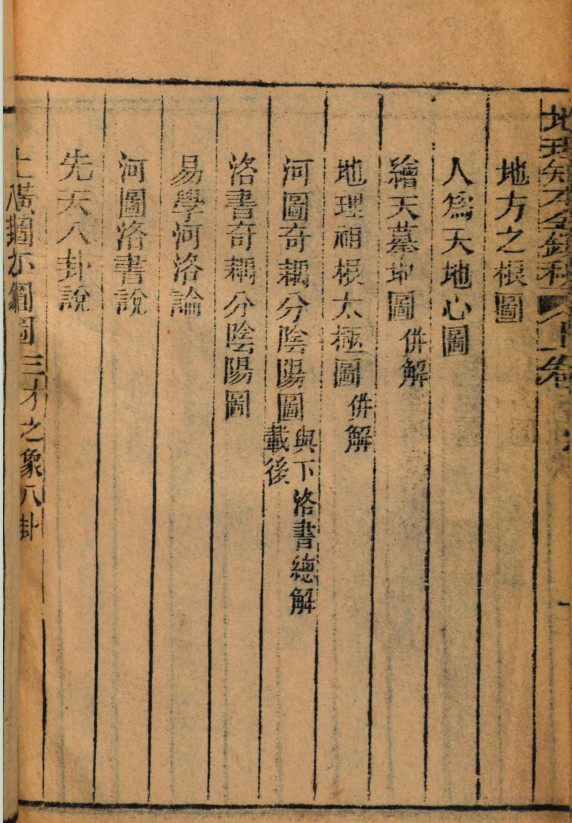 地理知本金鎖秘
地方之根圖
人為天地心圖
繪天摹地圖 併解
地理祖根太極圖 併解
河圖奇耦分陰陽圖 與下洛書總解載後
洛書奇耦分陰陽圖
易學河洛論
河圖洛書說
先天八卦說
橫圖 圓圖 三才之象八卦